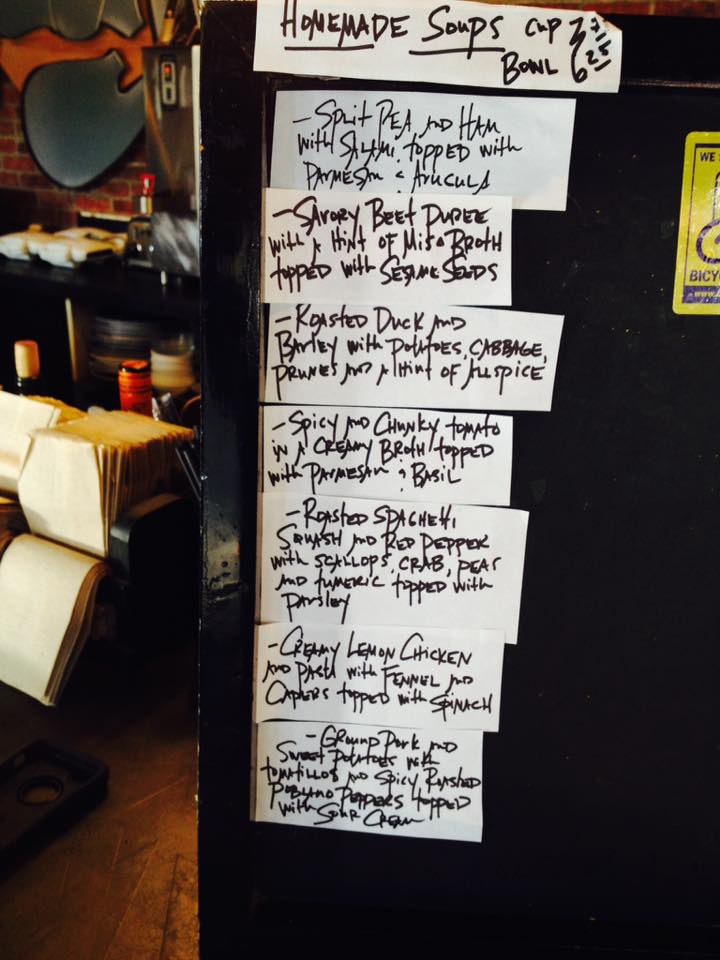 HOMEMADE SOUPS CUP 3 75
BOWL 6 25
- SPLIT PEA AND HAM
WITH SALAMI, TOPPED WITH
PARMESAN & ARUGULA
- SAVORY BEET PUREE
WITH A HINT OF MISO BROTH
TOPPED WITH SESAME SEEDS
- ROASTED DUCK AND
BARLEY WITH POTATOES, CABBAGE,
PRUNES AND A HINT OF ALLSPICE
- SPICY AND CHUNKY TOMATO
IN A CREAMY BROTH TOPPED
WITH PARMESAN & BASIL
- ROASTED SPAGHETTI
SQUASH AND RED PEPPER
WITH SCALLOPS, CRAB, PEAS
AND TUMERIC TOPPED WITH
PARSLEY
- CREAMY LEMON CHICKEN
AND PASTA WITH FENNEL AND
CAPERS TOPPED WITH SPINACH
- GROUND PORK AND
SWEET POTATOES WITH
TOMATILLOS AND SPICY ROASTED
POBLANO PEPPERS TOPPED
WITH SOUR CREAM
WE
BICYC
www.